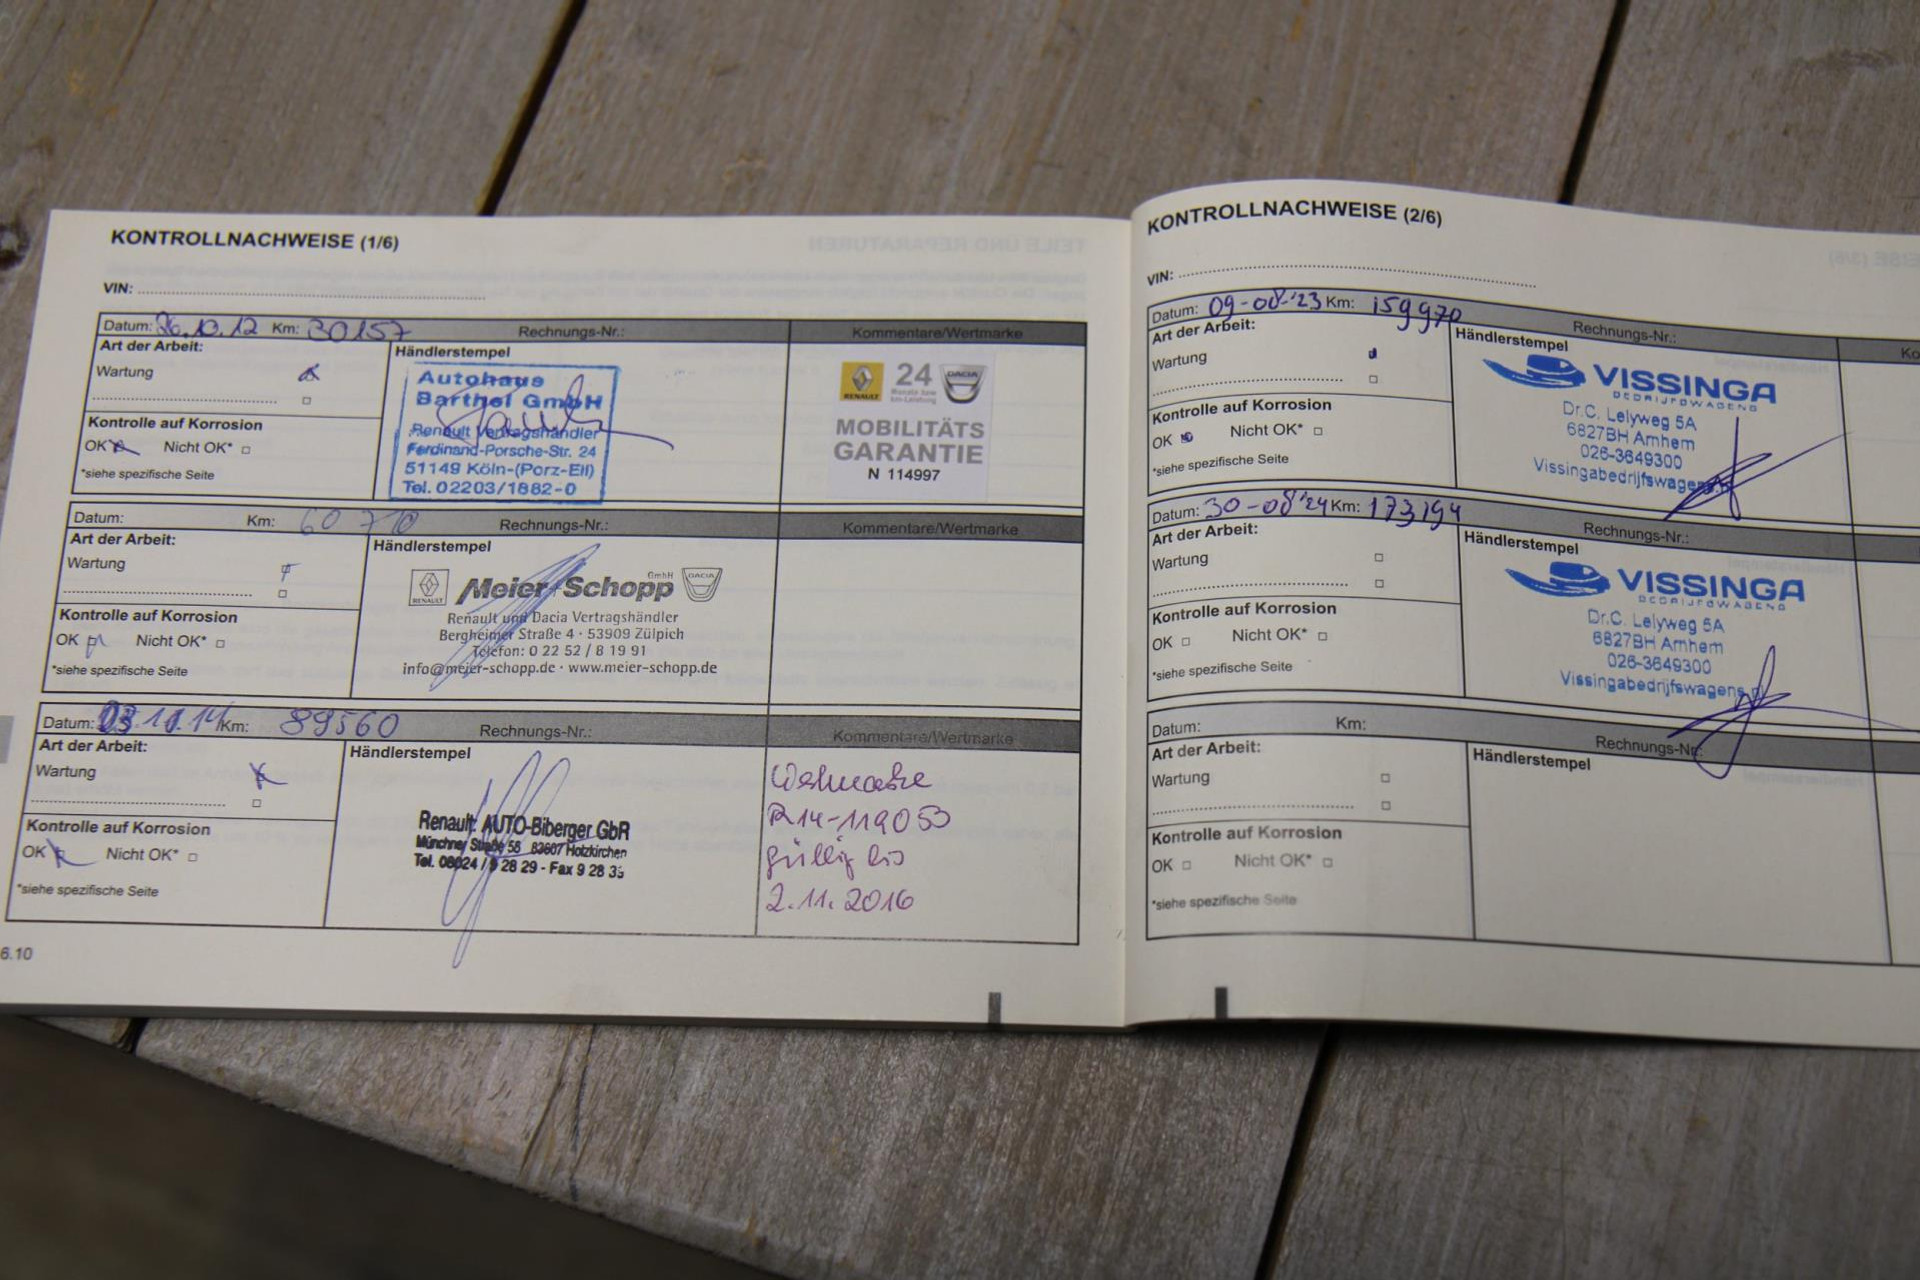 KONTROLLNACHWEISE (1/6)
VIN:
Datum: 26.10.12 Km: 30157 Rechnungs-Nr.: Kommentare/Wertmarke
Art der Arbeit:
Wartung
Händlerstempel
Autohaus
Barthel GmbH
Renault Vertragshändler
Ferdinand-Porsche-Str. 24
51149 Köln-(Porz-Eil)
Tel. 02203/1882-0
RENAULT 24 DACIA
Monate bzw.
km-Leistung
MOBILITÄTS
GARANTIE
N 114997
Kontrolle auf Korrosion
OK Nicht OK*
*siehe spezifische Seite
Datum: Km: 60 710 Rechnungs-Nr.: Kommentare/Wertmarke
Art der Arbeit:
Wartung
Händlerstempel
RENAULT Meier+Schopp GmbH DACIA
Renault und Dacia Vertragshändler
Bergheimer Straße 4 · 53909 Zülpich
Telefon: 0 22 52 / 8 19 91
info@meier-schopp.de · www.meier-schopp.de
Kontrolle auf Korrosion
OK Nicht OK*
*siehe spezifische Seite
Datum: 03.11.14 Km: 89560 Rechnungs-Nr.: Kommentare/Wertmarke
Art der Arbeit:
Wartung
Händlerstempel
Renault AUTO-Biberger GbR
Münchner Straße 56 83607 Holzkirchen
Tel. 08024 / 9 28 29 - Fax 9 28 35
Wertmarke
R14-119053
gültig bis
2.11.2016
Kontrolle auf Korrosion
OK Nicht OK*
*siehe spezifische Seite
6.10
KONTROLLNACHWEISE (2/6)
VIN:
Datum: 09-08-'23 Km: 159970 Rechnungs-Nr.:
Art der Arbeit:
Wartung
Händlerstempel
VISSINGA
BEDRIJFSWAGENS
Dr.C. Lelyweg 5A
6827BH Arnhem
026-3649300
Vissingabedrijfswagens.nl
Kontrolle auf Korrosion
OK Nicht OK*
*siehe spezifische Seite
Datum: 30-08-'24 Km: 173194 Rechnungs-Nr.:
Art der Arbeit:
Wartung
Händlerstempel
VISSINGA
BEDRIJFSWAGENS
Dr.C. Lelyweg 5A
6827BH Arnhem
026-3649300
Vissingabedrijfswagens.nl
Kontrolle auf Korrosion
OK Nicht OK*
*siehe spezifische Seite
Datum: Km: Rechnungs-Nr.:
Art der Arbeit:
Wartung
Händlerstempel
Kontrolle auf Korrosion
OK Nicht OK*
*siehe spezifische Seite